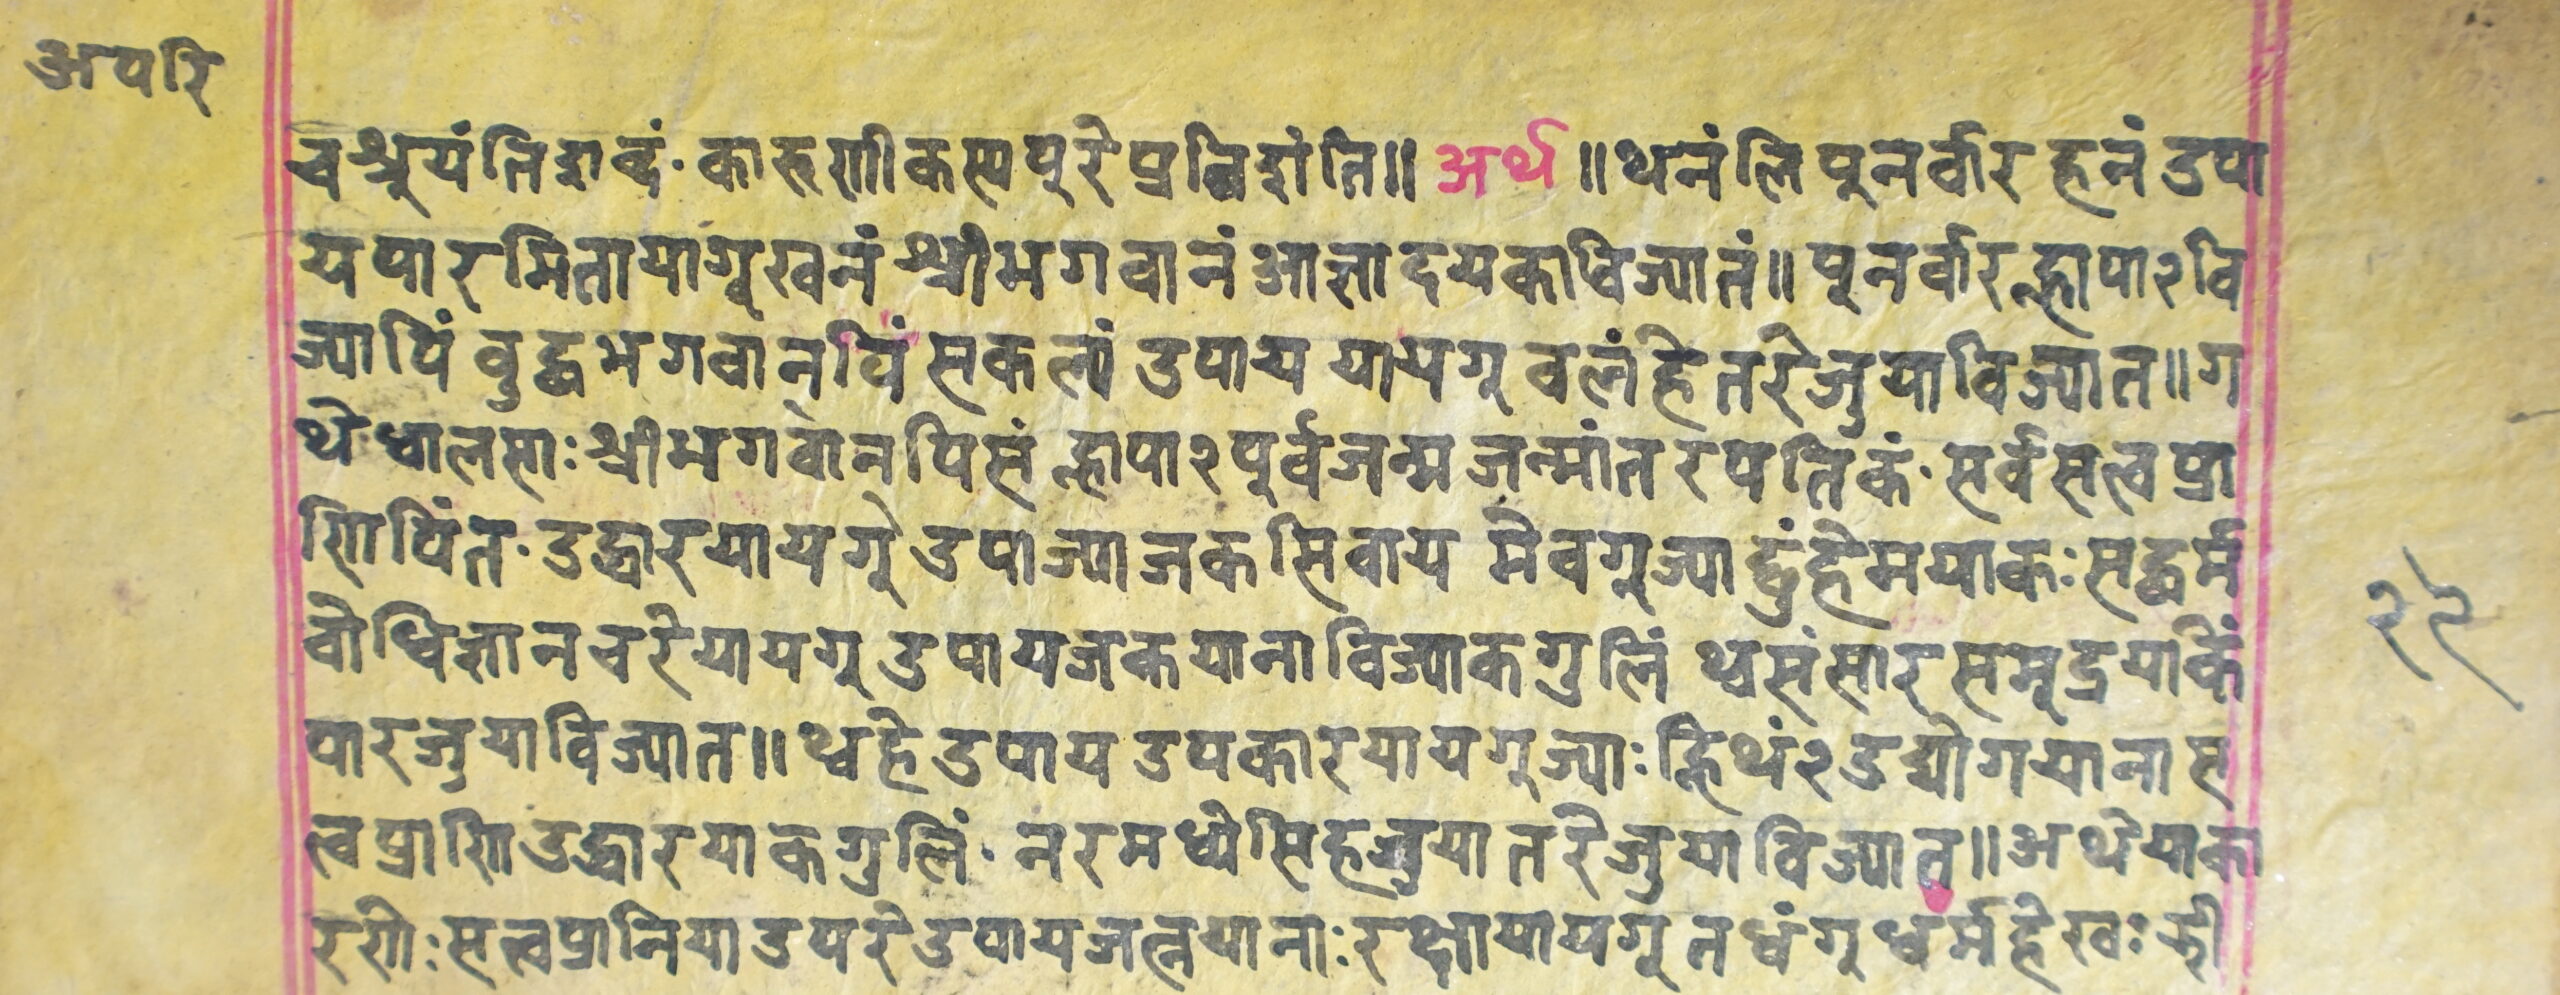 अपरि
चश्रुयंति शब्दं॰ कारुणीकस्य पुरे प्रविशंति॥ अर्थ॥ थनंलि पुनर्वार हनं उपा
यपारमिताया गूखनं श्रीभगवानं आज्ञा दयका विज्यातं॥ पुनर्वार ह्लापा२ वि
ज्यापिं वुद्धभगवान्पिं सकलां उपाय यायगू वलं हे तरे जुया विज्यात॥ ग
थे धालसाः श्रीभगवानपिसं ह्लापा२ पुर्वजन्म जन्मांतरपतिकं॰ सर्वसत्वप्रा
णिपिंत॰ उद्धार यायगू उपाज्या जक सिवाय मेवगू ज्या छुं हे मयाकः सद्धर्म
वोधिज्ञान चरे यायगू उपाय जक याना विज्याकगुलिं थ्व संसार समूद्रयाकिं
पार जुया विज्यात॥ थ्व हे उपाय उपकार यायगू ज्याः ह्निथं२ उद्योग याना स
त्वप्राणि उद्धार याकगुलिं॰ नरमध्ये सिह जुया तरे जुया विज्यात॥ अथेया का
रणीः सत्वप्रानिया उपरे उपाय जत्न यानाः रक्षा यायगू तधंगु धर्म हे खः की
२९